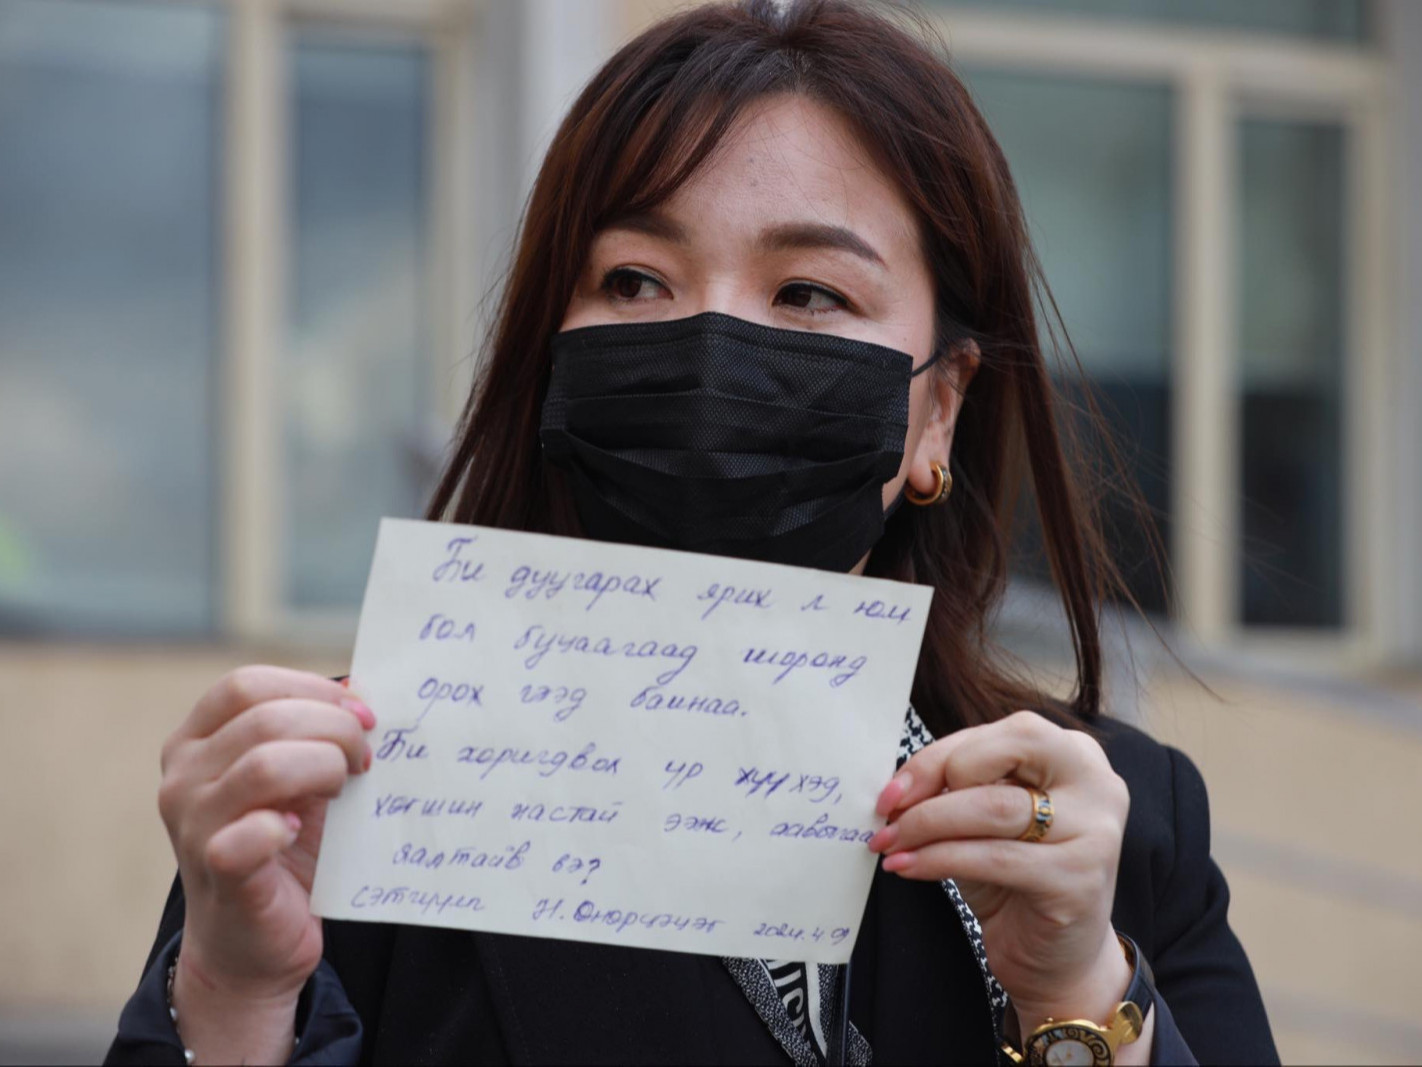 Би дуугарах ярих л юм
бол буцаагаад шоронд
орох гээд байнаа.
Би хоригдвол үр хүүхэд,
хөгшин настай ээж, аавыгаа
яалтайв вэ?
сэтгүүлч Н.Өнөрцэцэг 2024.4.9